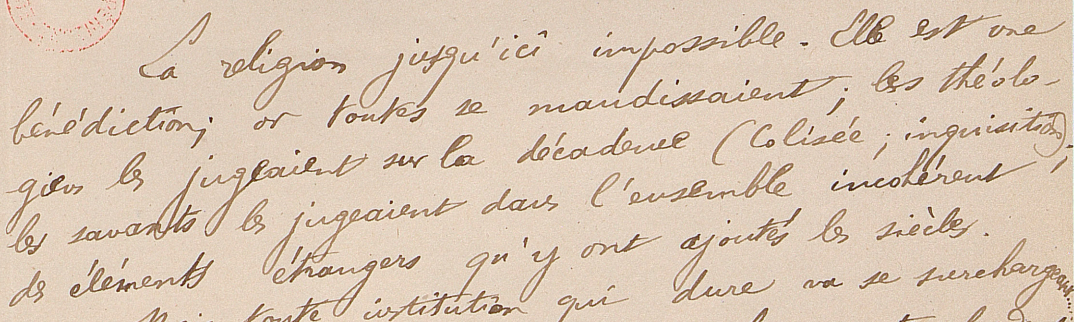 La religion jusqu'ici impossible. Elle est une
bénédiction; or toutes se maudissaient; les théolo-
giens les jugeaient sur la décadence (Colisée; inquisition);
les savants les jugeaient dans l'ensemble incohérent
des éléments étrangers qu'y ont ajoutés les siècles.
toute institution qui dure va se surchargeant